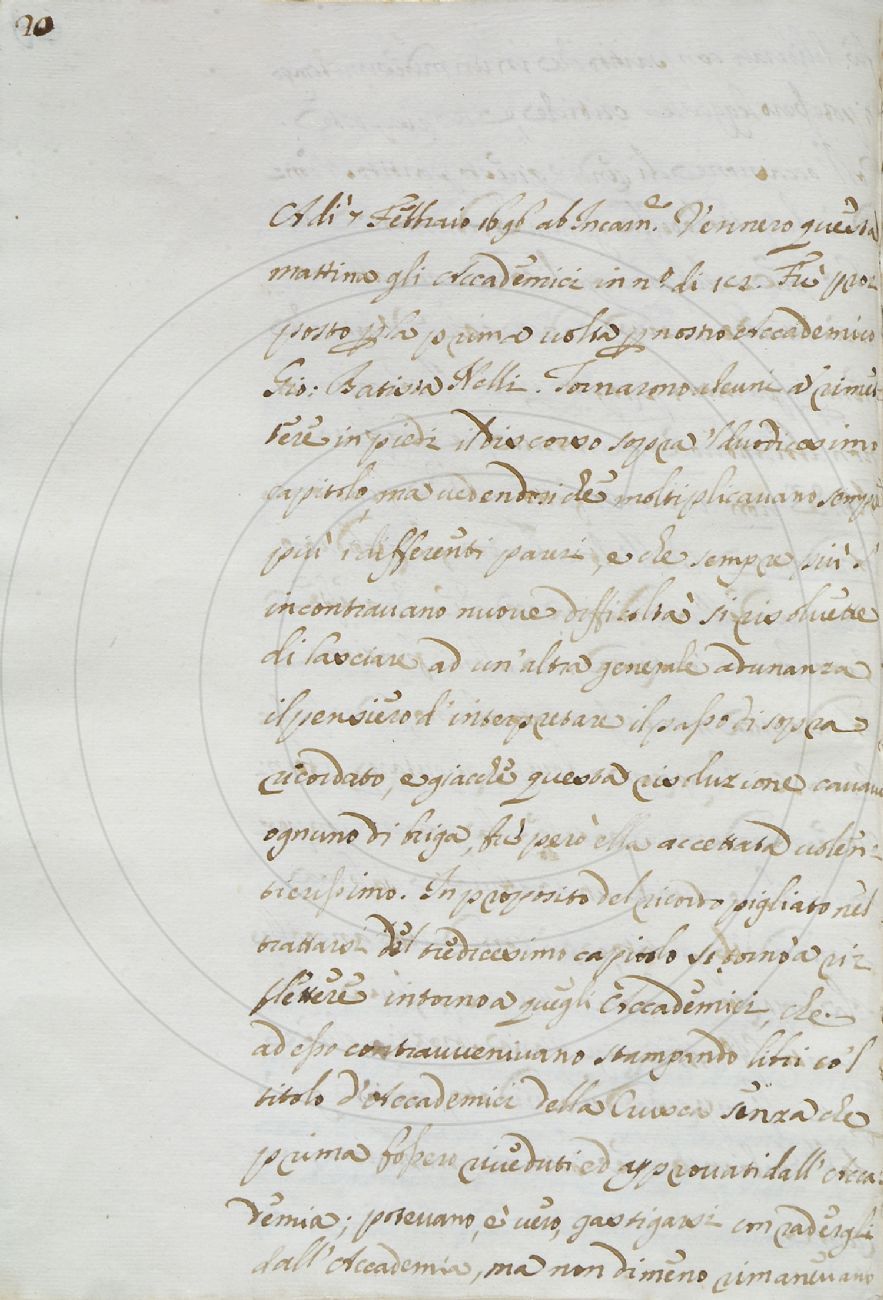 20
Adì 7 Febbraio 1696 ab Incarn.e Vennero questa
mattina gli Accademici in n.o di 12. Fù pro=
posto p la prima volta p nostro Accademico
Gio: Batista Nelli. Tornarono alcuni a rimet=
tere in piedi il discorso sopra 'l duodicesimo
capitolo, ma vedendosi che moltiplicavano sempre
più i differenti pareri, e che sempre più s'
incontravano nuove difficoltà si risoluette
di lasciare ad un'altra generale adunanza
il pensiero d'interpretare il passo di sopra
ricordato, e giacchè questa risoluzione cavava
ognuno di briga, fù però ella accettata volen=
tierissimo. In proposito del ricordo pigliato nel
trattarsi del tredicesimo capitolo si tornò a ri=
flettere intorno a quegli Accademici, che
ad esso contravvenivano stampando libri co'l
titolo d'Accademici della Crusca senza che
prima fossero riveduti ed approvati dall'Acca=
demia; potevano, è vero, gastigarsi con radergli
dall'Accademia, ma non dimeno rimanevano